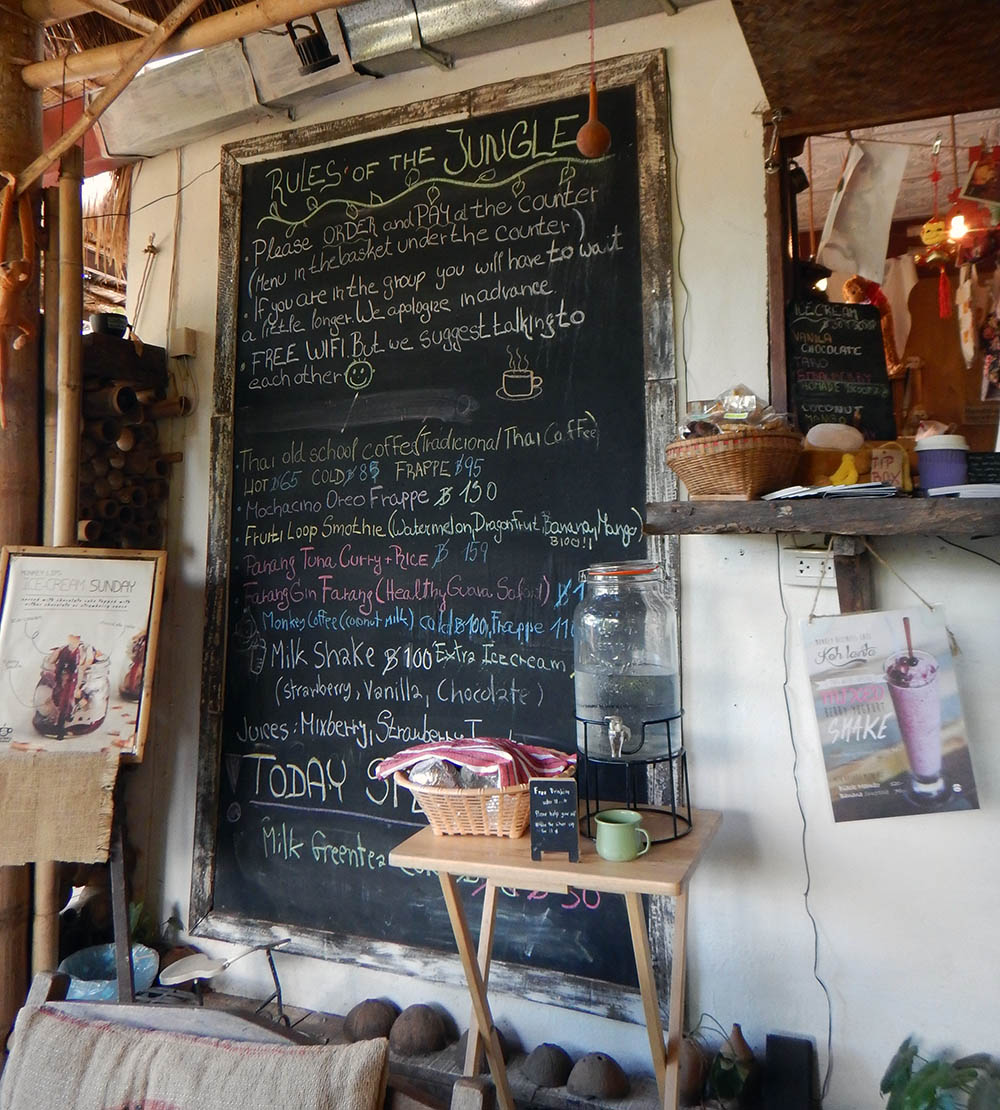 RULES OF THE JUNGLE
• Please ORDER and PAY at the counter
(Menu in the basket under the counter)
• If you are in the group you will have to wait
a little longer. We apologize in advance
• FREE WIFI. But we suggest talking to
each other
• Thai old school coffee (Tradicional Thai Coffee)
HOT ฿65 COLD ฿85 FRAPPE ฿95
• Mochacino Oreo Frappe ฿ 150
• Fruti Loop Smothie (Watermelon, Dragon Fruit, Banana, Mango)
฿100!!
Panang Tuna Curry + RICE ฿ 159
Farang Gin Farang (Healthy Guava Salad) ฿1
• Monkey Coffee (coconut milk) Cold ฿100, Frappe 11
Milk Shake ฿100 Extra Ice cream
(strawberry, Vanilla, Chocolate)
Juices: Mixberry, Strawberry
TODAY SP
Milk Greentea
ICECREAM
VANILA
CHOCOLATE
TARO
STRAWBERRY
COCONUT
MANGO
TIP BOX
MONKEY LIPS
ICE-CREAM SUNDAY
served with chocolate cake topped with
either chocolate or strawberry sauce
Free Drinking
water
Please help you self
Koh lanta
MIXED
BERRY YOGHURT
SHAKE